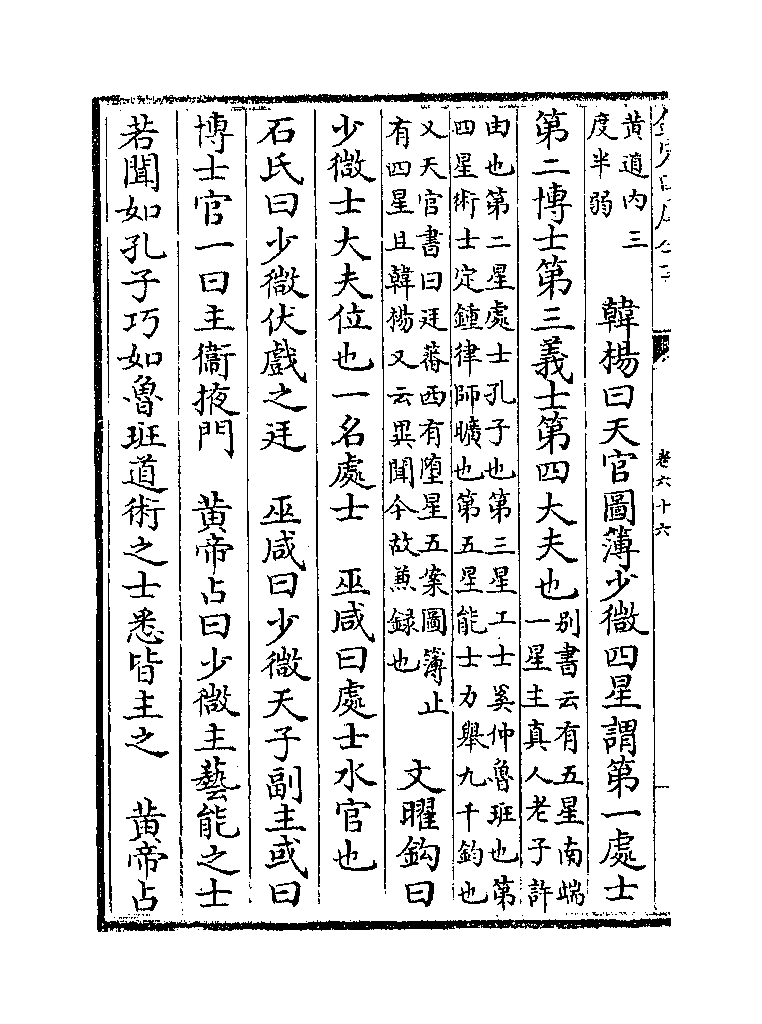 黄道内三
度半弱
韓楊曰天官圖簿少微四星謂第一處士
第二博士第三義士第四大夫也
别書云有五星南端
一星主真人老子許
由也第二星處士孔子也第三星工士奚仲魯班也第
四星術士定鍾律師曠也第五星能士力舉九千鈞也
又天官書曰廷蕃西有隋星五案圖簿止
有四星且韓楊又云異聞今故兼録也
文曜鈎曰
少微士大夫位也一名處士　巫咸曰處士水官也
石氏曰少微伏戲之廷　巫咸曰少微天子副主或曰
博士官一曰主衞掖門　黄帝占曰少微主藝能之士
若聞如孔子巧如魯班道術之士悉皆主之　黄帝占
卷六十六